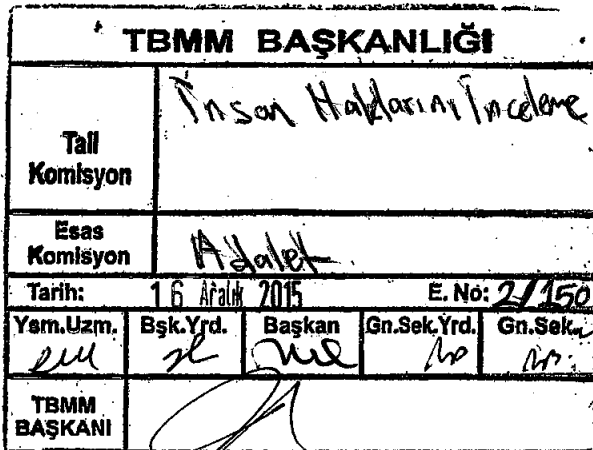 TBMM BAŞKANLIĞI
Tali Komisyon
İnsan Haklarını İnceleme
Esas Komisyon
Adalet
Tarih: 16 Aralık 2015 E. No: 2/150
Ysm.Uzm. Bşk.Yrd. Başkan Gn.Sek.Yrd. Gn.Sek.
TBMM BAŞKANI